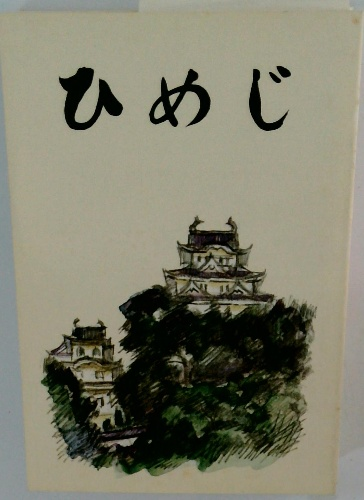 ひめじ